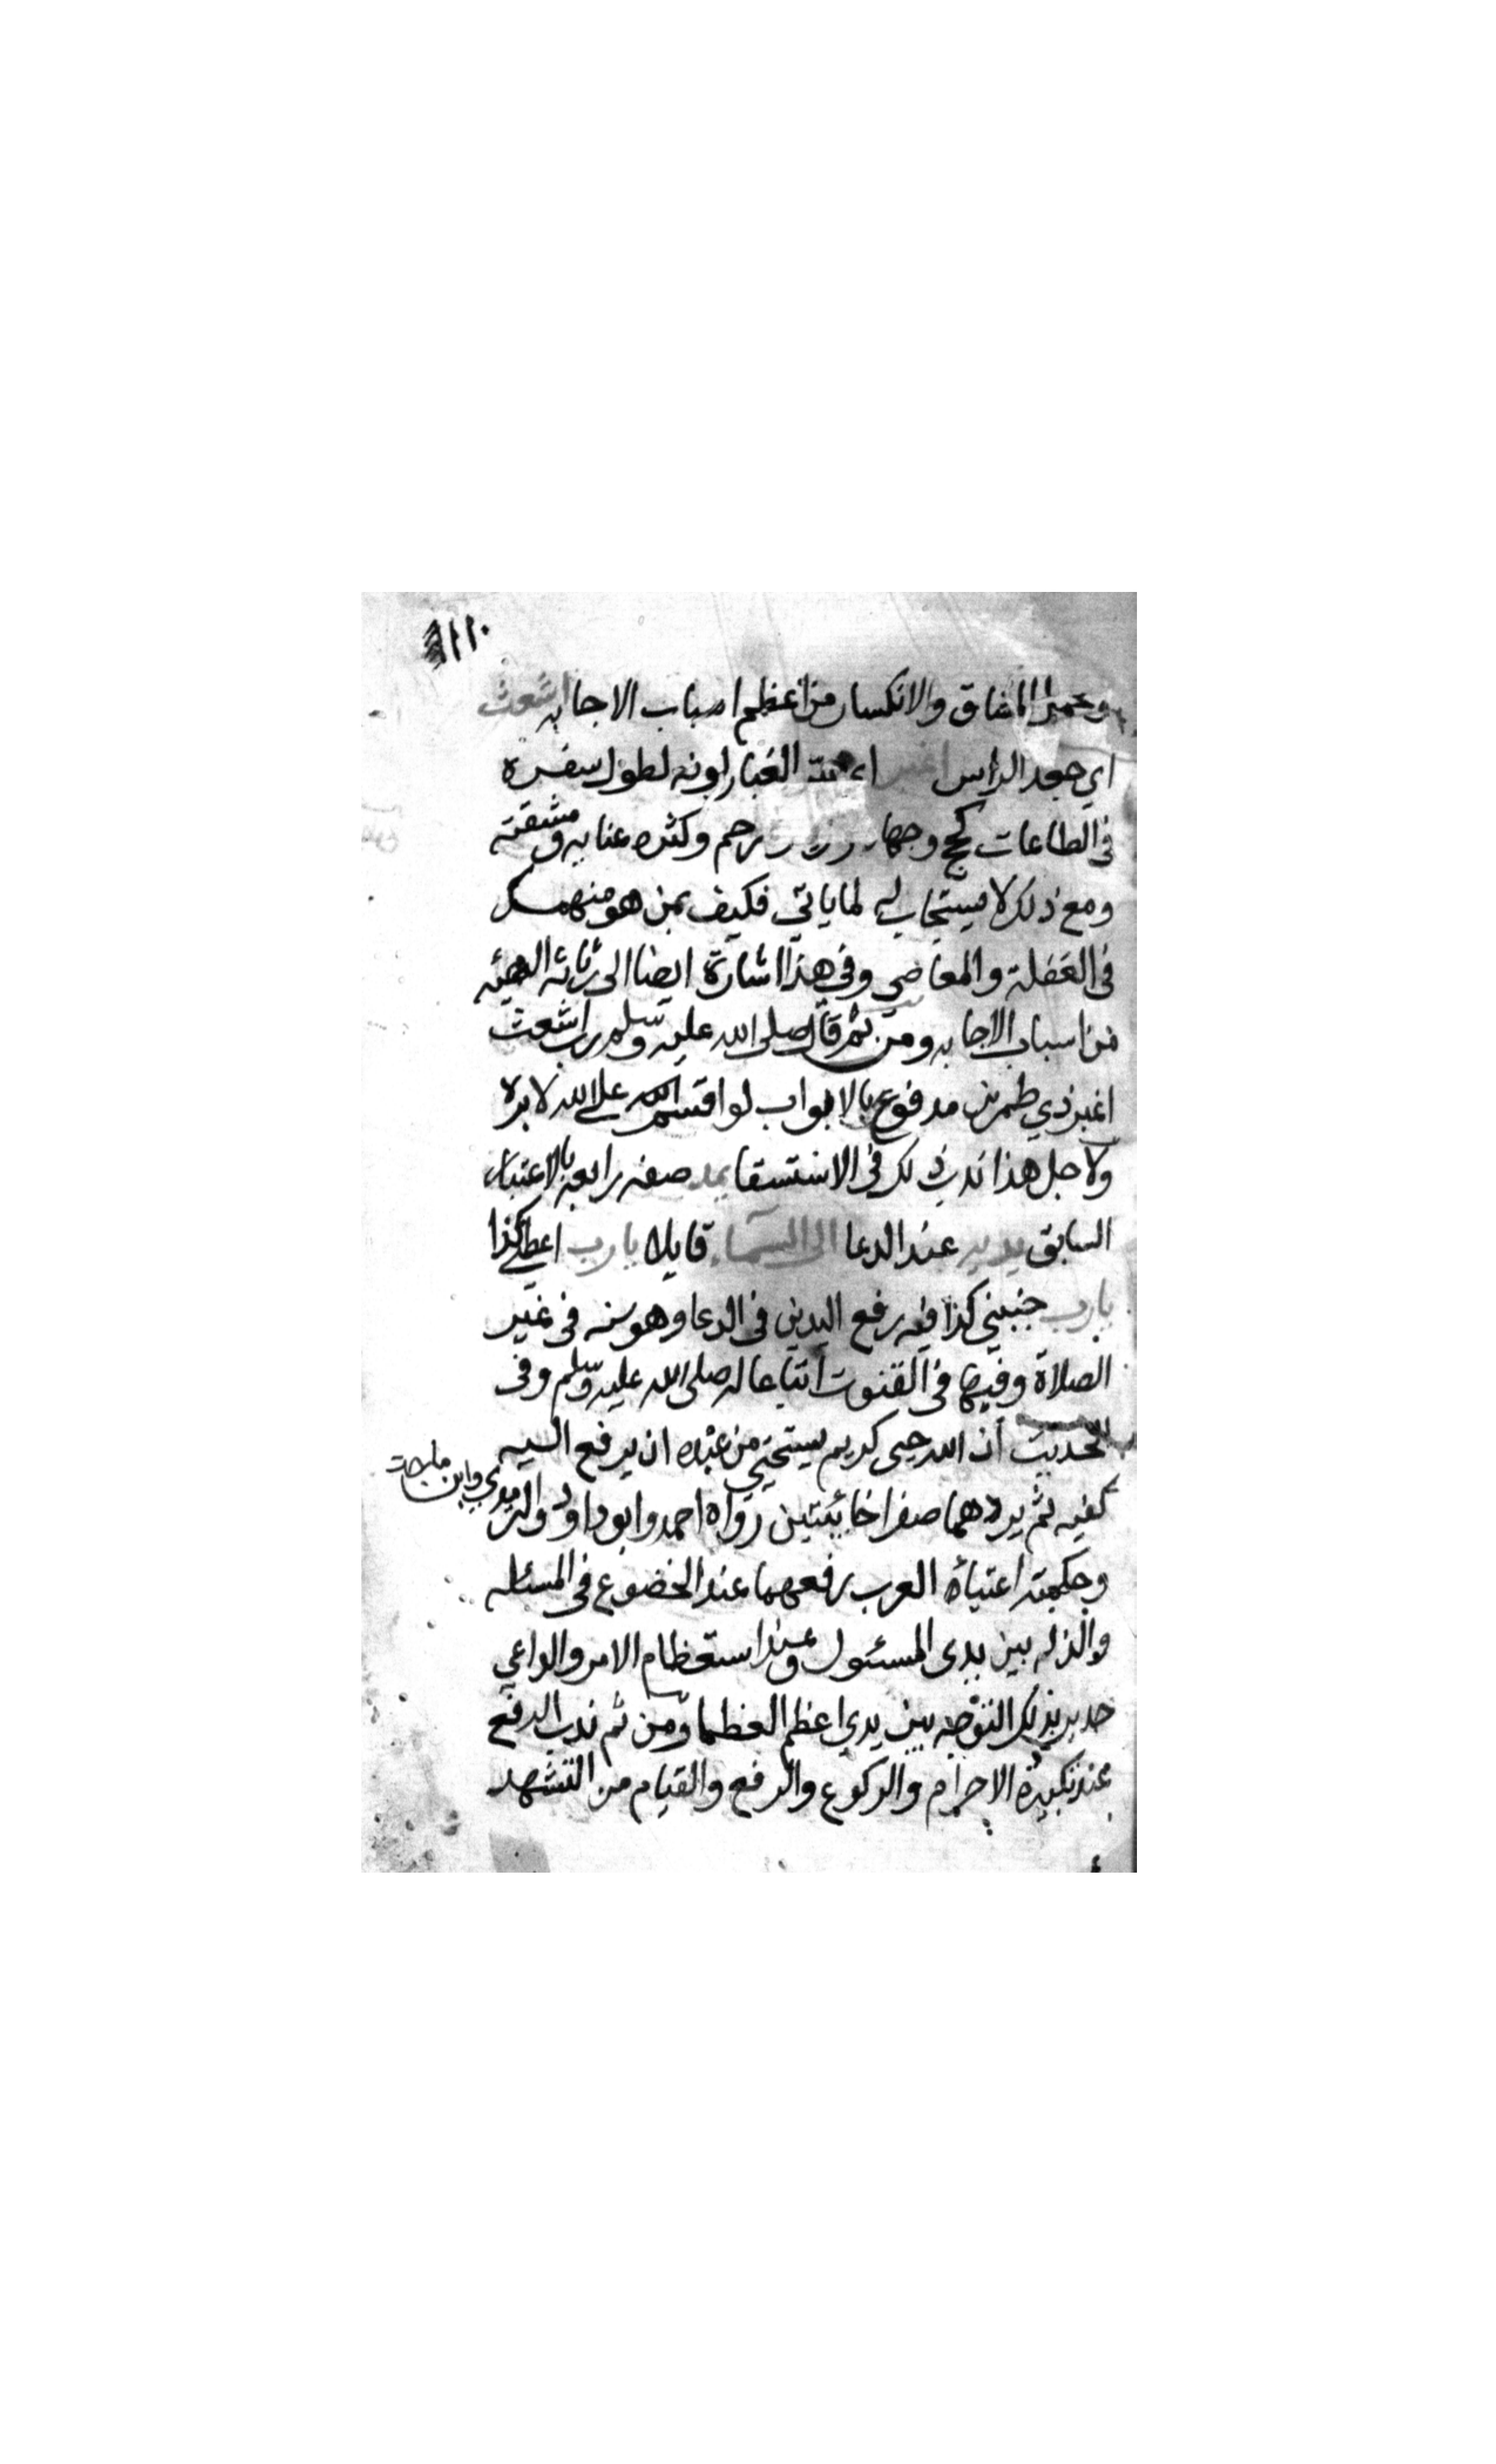 ١١٠
وتحمل المشاق والانكسار من اعظم اسباب الاجابه اشعث
اي جعد الراس اغبر اي الغبار لونه لطول سفره
في الطاعات كحج وجهاد رحم وكثره عنايه ومشقته
ومع ذلك لا يستجاب له لما ياتي فكيف بمن هو منهمك
في الغفلة والمعاصي وفي هذا اشارة ايضا الى رثاثه الهيئه
من اسباب الاجابه ومن ثم قال صلى الله عليه وسلم رب اشعث
اغبر ذي طمرين مدفوع بالابواب لو اقسم على الله لابره
ولاجل هذا ندب ذلك في الاستسقا يمد صفه رابعه بالاعتبار
السابق يديه عند الدعا الى السماء قايلا يا رب اعطني كذا
يا رب جنبني كذا فيه رفع اليدين في الدعا وهو سنه في غير
الصلاة وفيها في القنوت اتباعا له صلى الله عليه وسلم وفي
الحديث ان الله حيى كريم يستحيي من عبده ان يرفع اليه
كفيه ثم يردهما صفرا خائبتين رواه احمد وابو داود والترمذي وابن ماجه
وحكمته اعتياد العرب رفعهما عند الخضوع في المسئله
والذله بين يدى المسئول وعند استعظام الامر والداعي
جدير بذلك التوجه بين يدي اعظم العظما ومن ثم ندب الرفع
عند تكبيرة الاحرام والركوع والرفع والقيام من التشهد